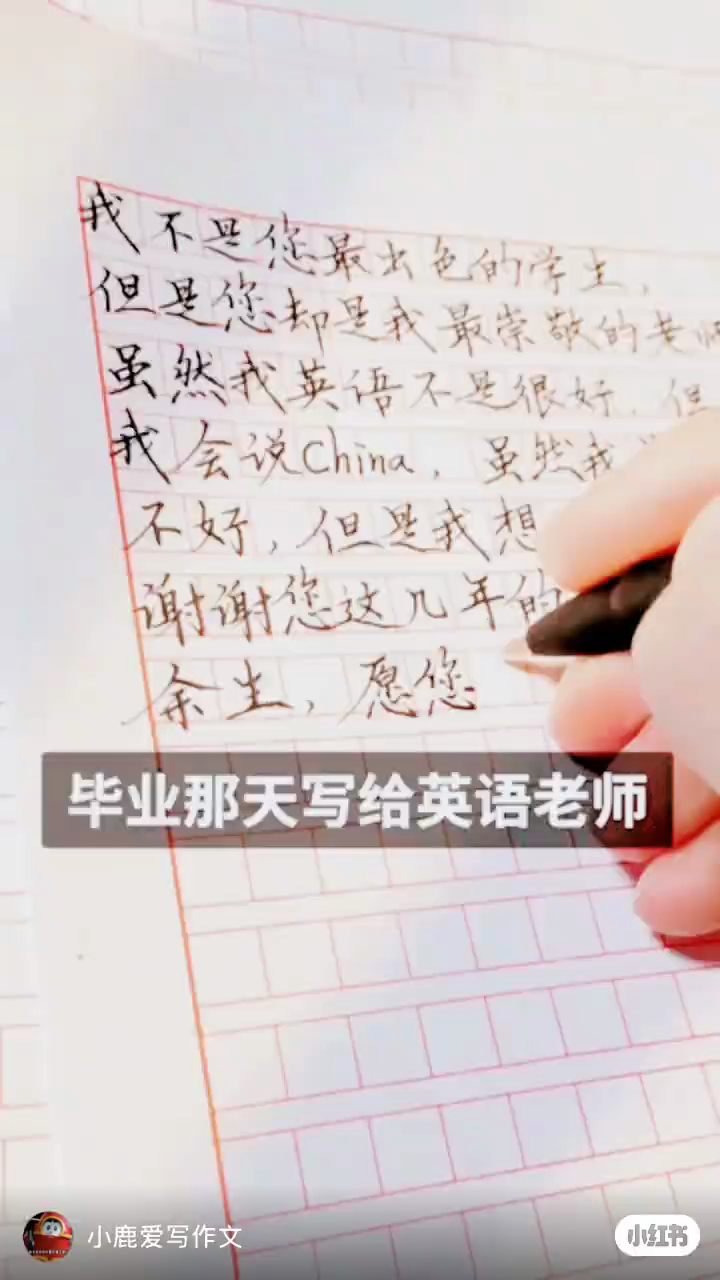 我不是您最出色的学生，
但是您却是我最崇敬的老师
虽然我英语不是很好，但
我会说China，虽然我
不好，但是我想
谢谢您这几年的
余生，愿您
毕业那天写给英语老师
小鹿爱写作文
小红书